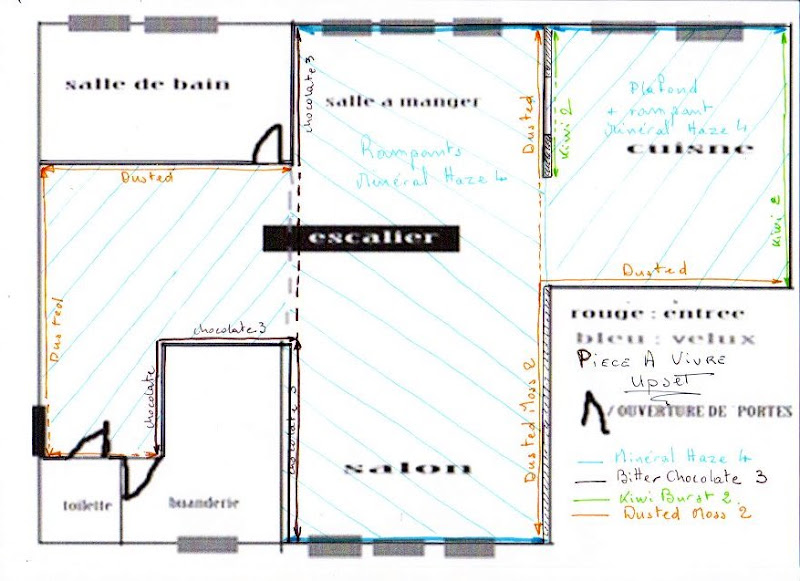 salle de bain
salle a manger
chocolate 3
Dusted
Kiwi 2
Plafond
+ rampant
Minéral Haze 4
cuisne
Rampants
Minéral Haze 4
Dusted
Kiwi 2
escalier
Dusted
Dusted
chocolate 3
chocolate
chocolate 3
Dusted Moss 2
rouge : entree
bleu : velux
PIECE A VIVRE
Upset
/OUVERTURE DE PORTES
salon
toilette
buanderie
Minéral Haze 4
Bitter Chocolate 3
Kiwi Burst 2.
Dusted Moss 2